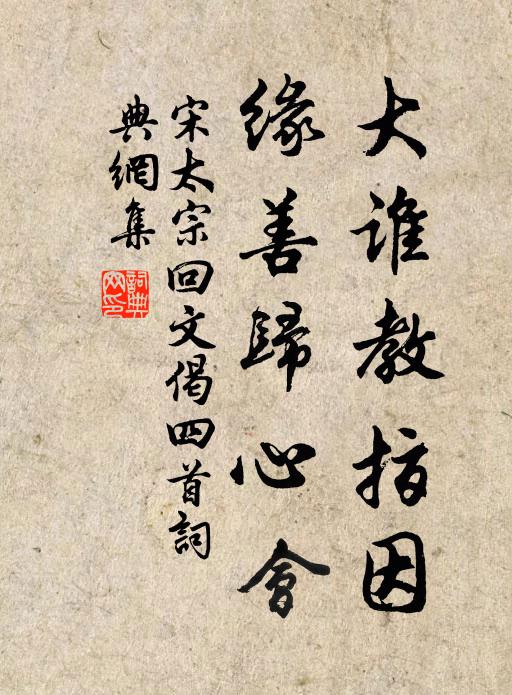 大誰教指因
緣善歸心會
宋太宗回文偈四首詞
典網集
詞典
网印